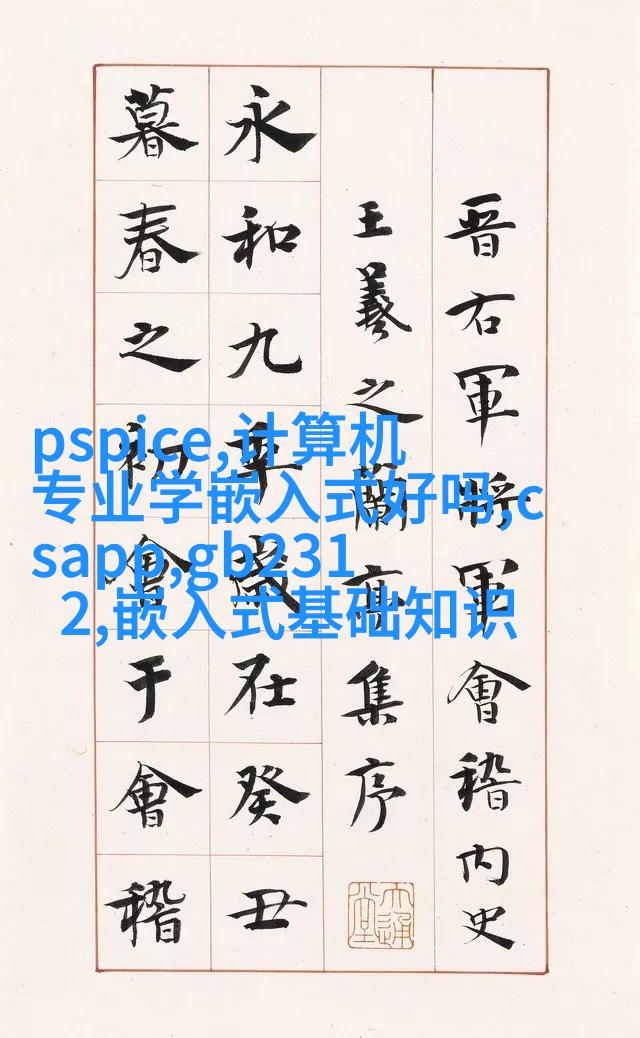 晋右軍將軍會稽内史
王羲之蘭亭集序
永和九年歲在癸丑
暮春之初會于會稽
pspice,计算机
专业学嵌入式好吗,c
sapp,gb231
2,嵌入式基础知识